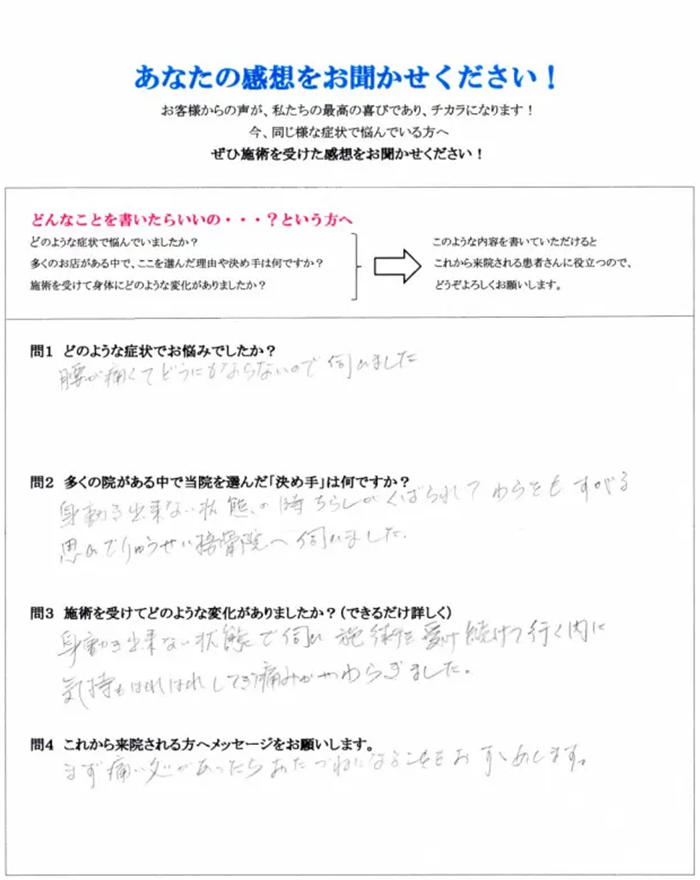 あなたの感想をお聞かせください！
お客様からの声が、私たちの最高の喜びであり、チカラになります！
今、同じ様な症状で悩んでいる方へ
ぜひ施術を受けた感想をお聞かせください！
どんなことを書いたらいいの・・・？という方へ
どのような症状で悩んでいましたか？
多くのお店がある中で、ここを選んだ理由や決め手は何ですか？
施術を受けて身体にどのような変化がありましたか？
このような内容を書いていただけると
これから来院される患者さんに役立つので、
どうぞよろしくお願いします。
問1 どのような症状でお悩みでしたか？
腰が痛くてどうにもならないので伺いました
問2 多くの院がある中で当院を選んだ「決め手」は何ですか？
身動き出来ない状態の時ちらしがくばられしてわらをもすがる
思いでりゅうせい接骨院へ伺いました。
問3 施術を受けてどのような変化がありましたか？（できるだけ詳しく）
身動き出来ない状態で伺い施術を受け続けて行く内に
気持もはればれしてき痛みがやわらぎました。
問4 これから来院される方へメッセージをお願いします。
まず痛い処があったらおたづねになることをおすすめします。